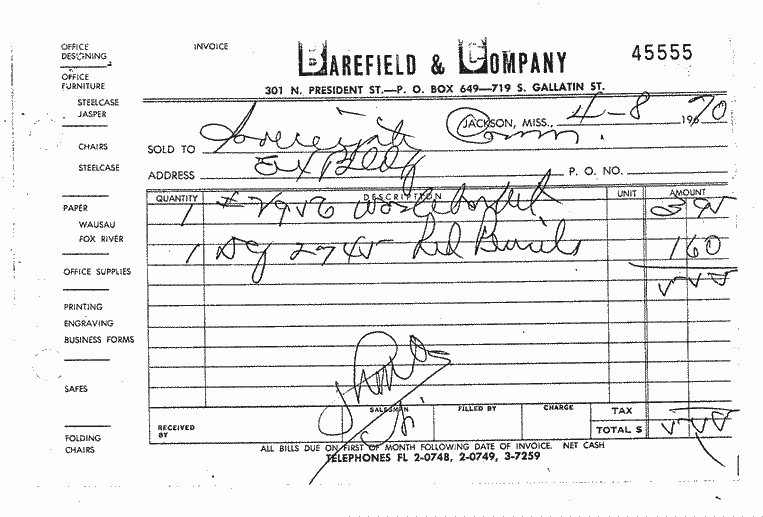 OFFICE DESIGNING
OFFICE FURNITURE
STEELCASE
JASPER
CHAIRS
STEELCASE
PAPER
WAUSAU
FOX RIVER
OFFICE SUPPLIES
PRINTING
ENGRAVING
BUSINESS FORMS
SAFES
FOLDING CHAIRS
INVOICE
BAREFIELD & COMPANY
45555
301 N. PRESIDENT ST.—P. O. BOX 649—719 S. GALLATIN ST.
JACKSON, MISS., 4-8 1970
SOLD TO Sovereignty Comm.
ADDRESS P. O. NO.
QUANTITY DESCRIPTION UNIT AMOUNT
1 3 95
1 Dz 2745 Red Pencils 1 60
5 55
SALESMAN FILLED BY CHARGE TAX
RECEIVED BY
TOTAL $ 5 55
ALL BILLS DUE ON FIRST OF MONTH FOLLOWING DATE OF INVOICE. NET CASH
TELEPHONES FL 2-0748, 2-0749, 3-7259